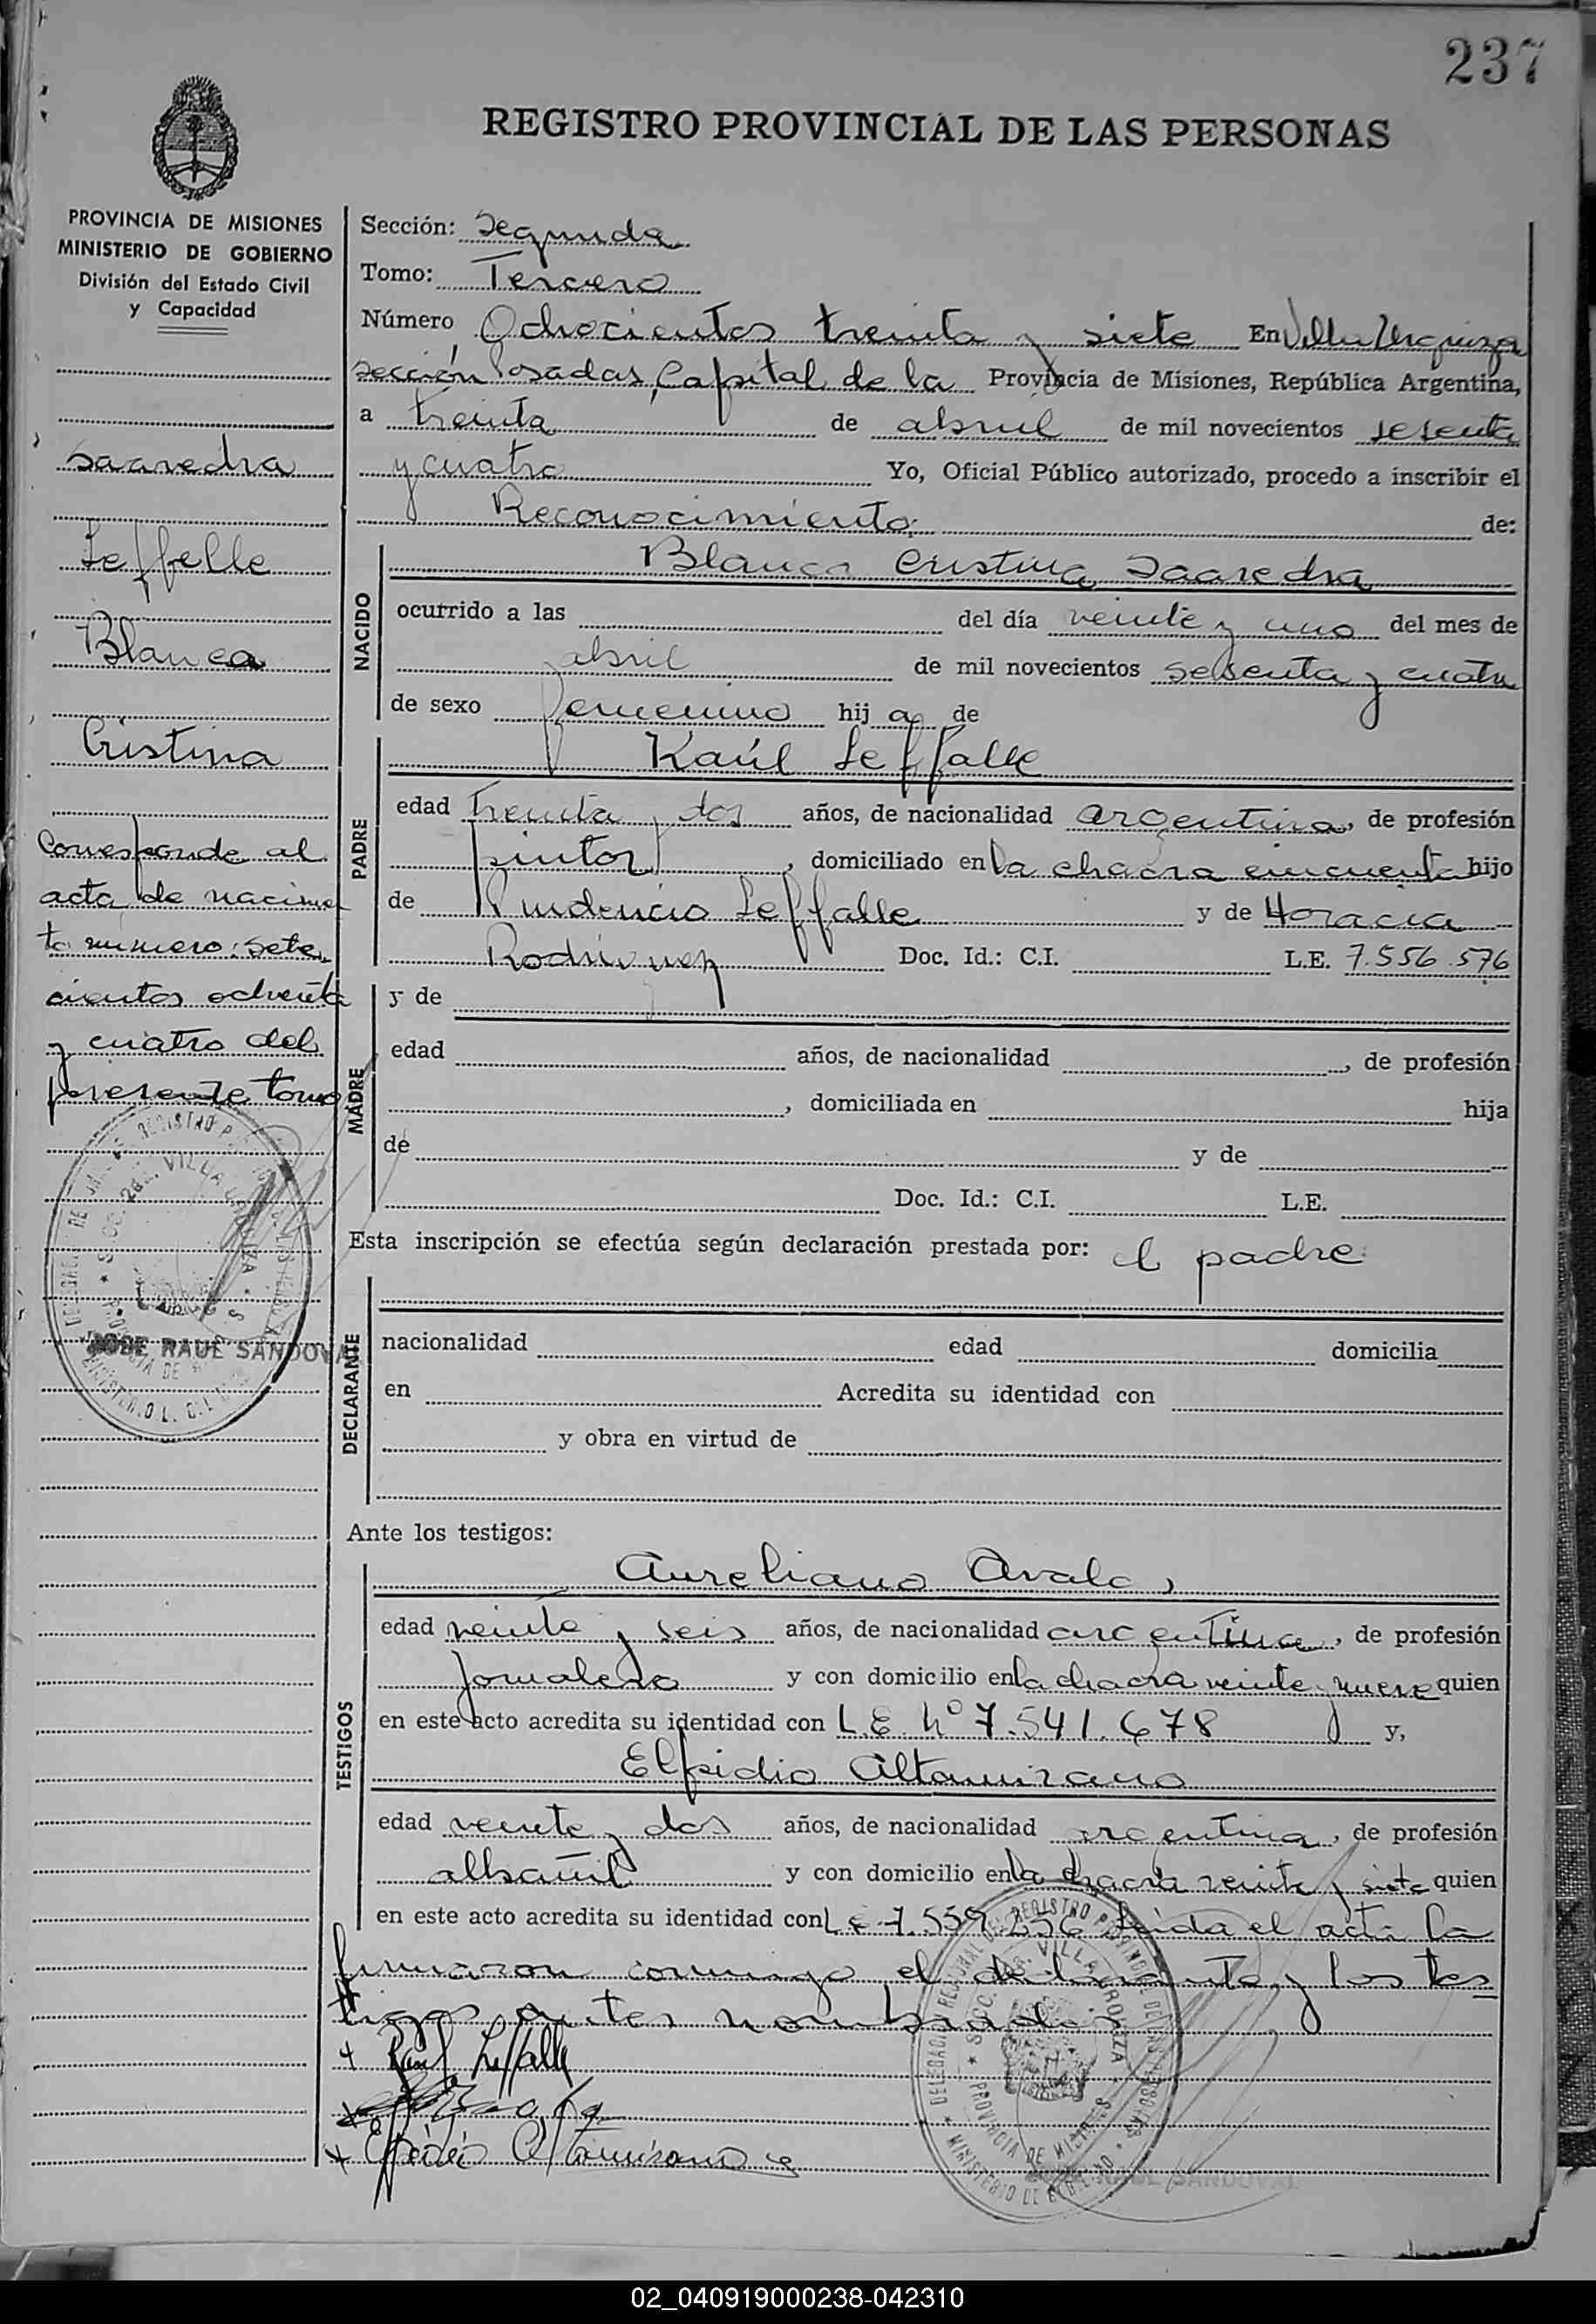 237
REGISTRO PROVINCIAL DE LAS PERSONAS
PROVINCIA DE MISIONES
MINISTERIO DE GOBIERNO
División del Estado Civil
y Capacidad
Saavedra
Leffelle
Blanca
Cristina
Corresponde al
acta de nacimien
to numero: sete
cientos ochenta
y cuatro del
presente tomo
JOSE RAUL SANDOVAL
Sección: Segunda
Tomo: Tercero
Número Ochocientos treinta y siete En Villa Urquiza
sección Posadas, Capital de la Provincia de Misiones, República Argentina,
a treinta de abril de mil novecientos sesenta
y cuatro Yo, Oficial Público autorizado, procedo a inscribir el
Reconocimiento de:
NACIDO
Blanca Cristina Saavedra
ocurrido a las del día veinte y uno del mes de
abril de mil novecientos sesenta y cuatro
de sexo femenino hij a de
PADRE
Raúl Leffalle
edad treinta y dos años, de nacionalidad argentina, de profesión
pintor, domiciliado en la chacra cincuenta hijo
de Prudencio Leffalle y de Horacia
Rodriguez Doc. Id.: C.I. L.E. 7.556.576
MADRE
y de
edad años, de nacionalidad , de profesión
, domiciliada en hija
de y de
Doc. Id.: C.I. L.E.
Esta inscripción se efectúa según declaración prestada por: el padre
DECLARANTE
nacionalidad edad domicilia
en Acredita su identidad con
y obra en virtud de
Ante los testigos:
TESTIGOS
Aureliano Avalos
edad veinte y seis años, de nacionalidad argentina, de profesión
jornalero y con domicilio en la chacra veinte y nueve quien
en este acto acredita su identidad con L.E. Nº 7.541.678 y,
Elpidio Altamirano
edad veinte y dos años, de nacionalidad argentina, de profesión
albañil y con domicilio en la chacra veinte y siete quien
en este acto acredita su identidad con L E 7.559.256 leida el acta la
firmaron conmigo el declarante y los tes
tigos antes nombrados
Raul Leffalle
Elpidio Altamirano
RAUL SANDOVAL
02_040919000238-042310